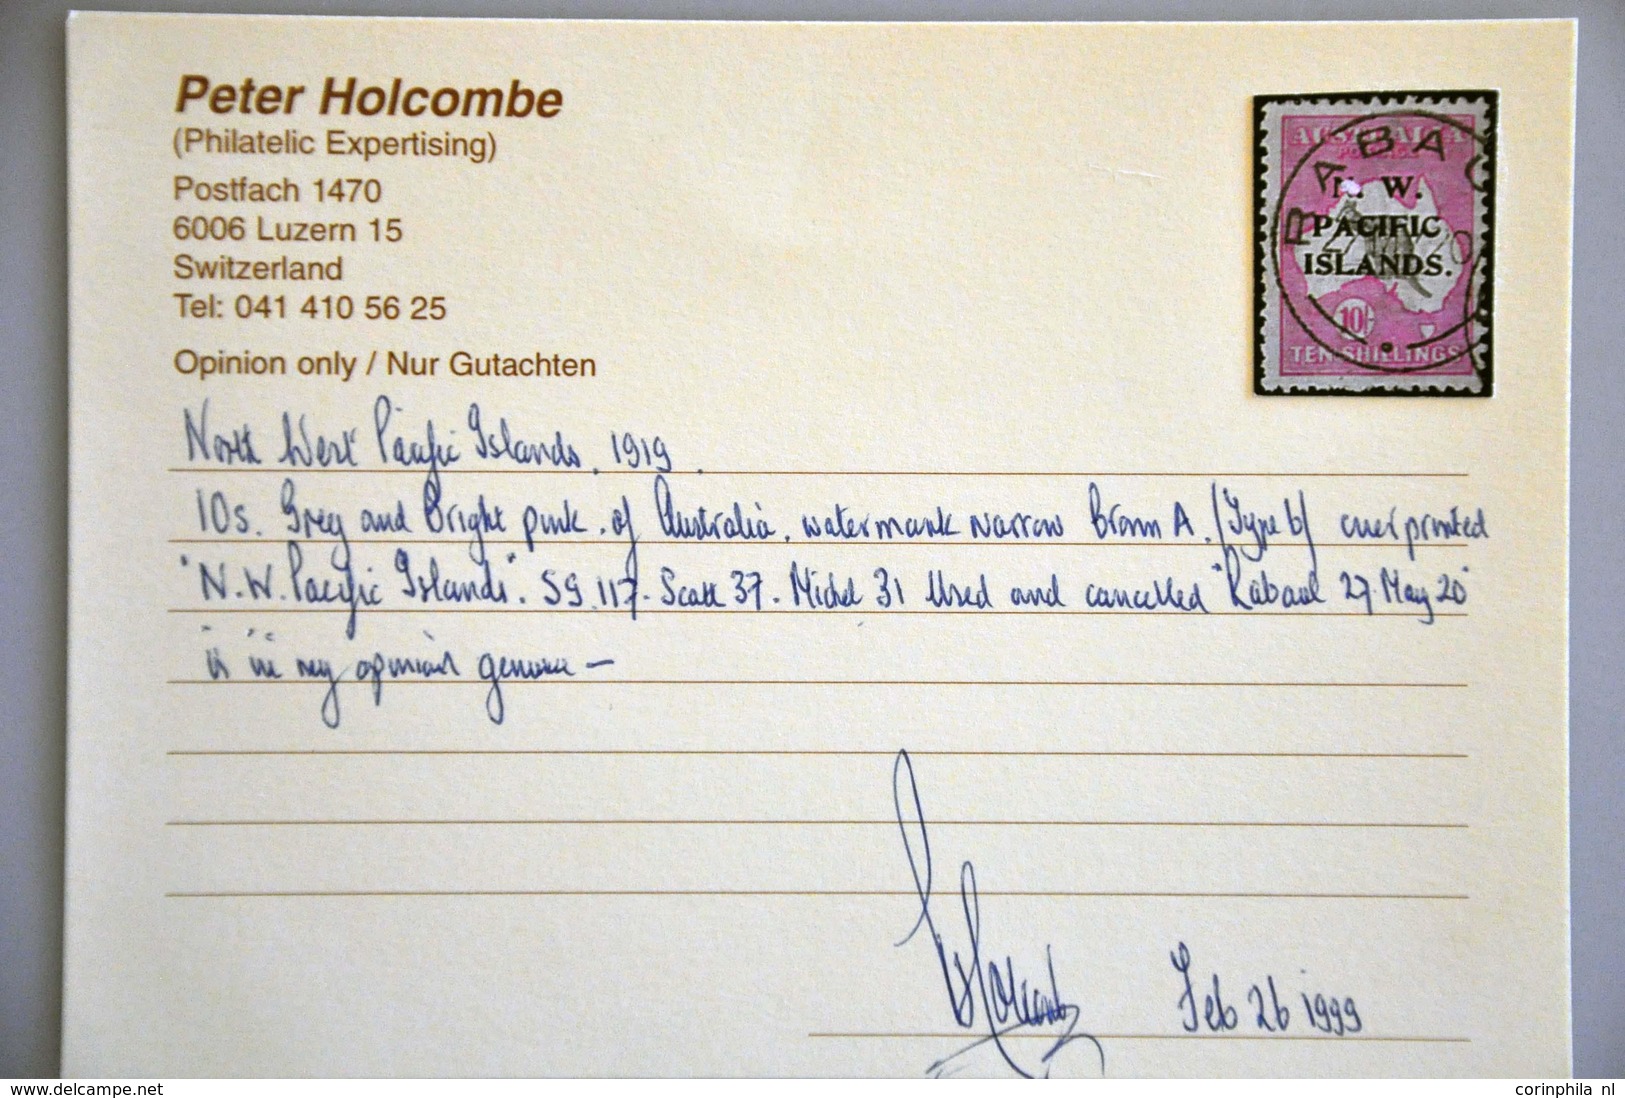 Peter Holcombe
(Philatelic Expertising)
Postfach 1470
6006 Luzern 15
Switzerland
Tel: 041 410 56 25
Opinion only / Nur Gutachten
AUSTRALIA
POSTAGE
RABAU
N. W.
PACIFIC
ISLANDS.
27 MAY 20
10/-
TEN SHILLINGS
North West Pacific Islands. 1919.
10s. Grey and bright pink. of Australia. watermark narrow Crown A. (Type b) overprinted
"N.W. Pacific Islands". SG. 117. Scott 37. Michel 31 Used and cancelled "Rabaul 27 May 20"
is in my opinion genuine –
Holcombe
Feb 26 1999
www.delcampe.net
corinphila nl